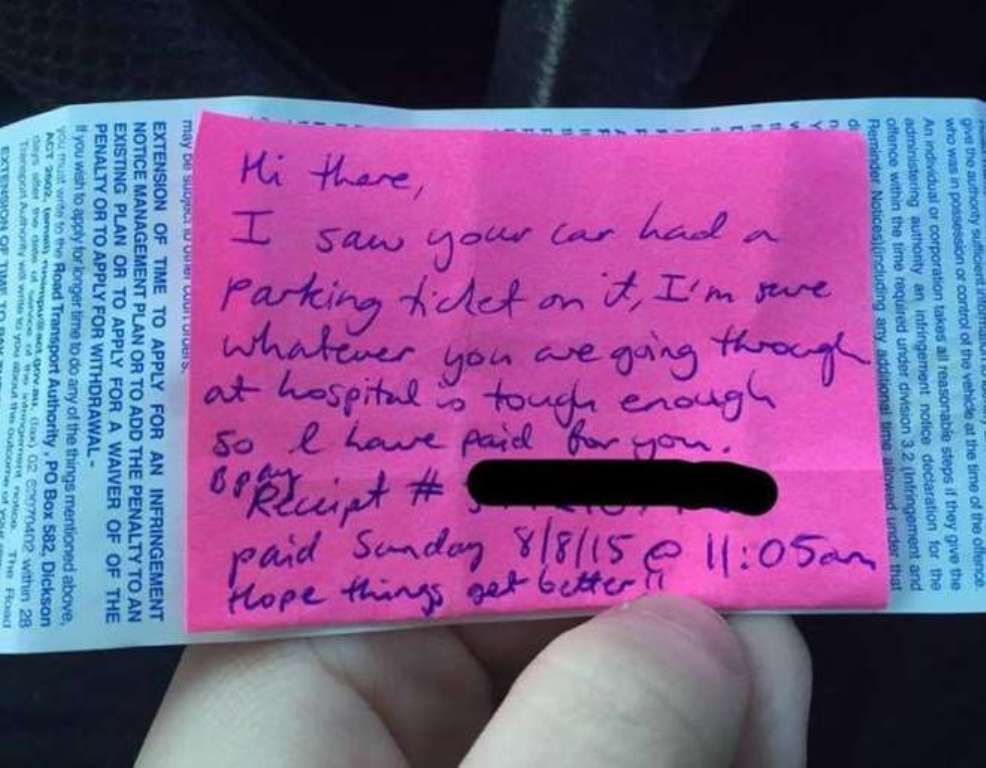 Hi there,
I saw your car had a
parking ticket on it, I'm sure
whatever you are going through
at hospital is tough enough
so I have paid for you.
Bpay
Receipt #
paid Sunday 8/8/15 @ 11:05am
Hope things get better!!
may be subject to other court orders.
EXTENSION OF TIME TO APPLY FOR AN INFRINGEMENT
NOTICE MANAGEMENT PLAN OR TO ADD THE PENALTY TO AN
EXISTING PLAN OR TO APPLY FOR A WAIVER OF OF THE
PENALTY OR TO APPLY FOR WITHDRAWAL -
If you wish to apply for longer time to do any of the things mentioned above,
you must write to the Road Transport Authority, PO Box 582, Dickson
ACT 2602, (fax) 02 within 28
days after the date of service of the infringement notice. The Road
Transport Authority will write to you about the outcome of your
EXTENSION OF TIME TO PAY
give the authority sufficient information
who was in possession or control of the vehicle at the time of the offence.
An individual or corporation takes all reasonable steps if they give the
administering authority an infringement notice declaration for the
offence within the time required under division 3.2 (Infringement and
Reminder Notices) including any additional time allowed under that